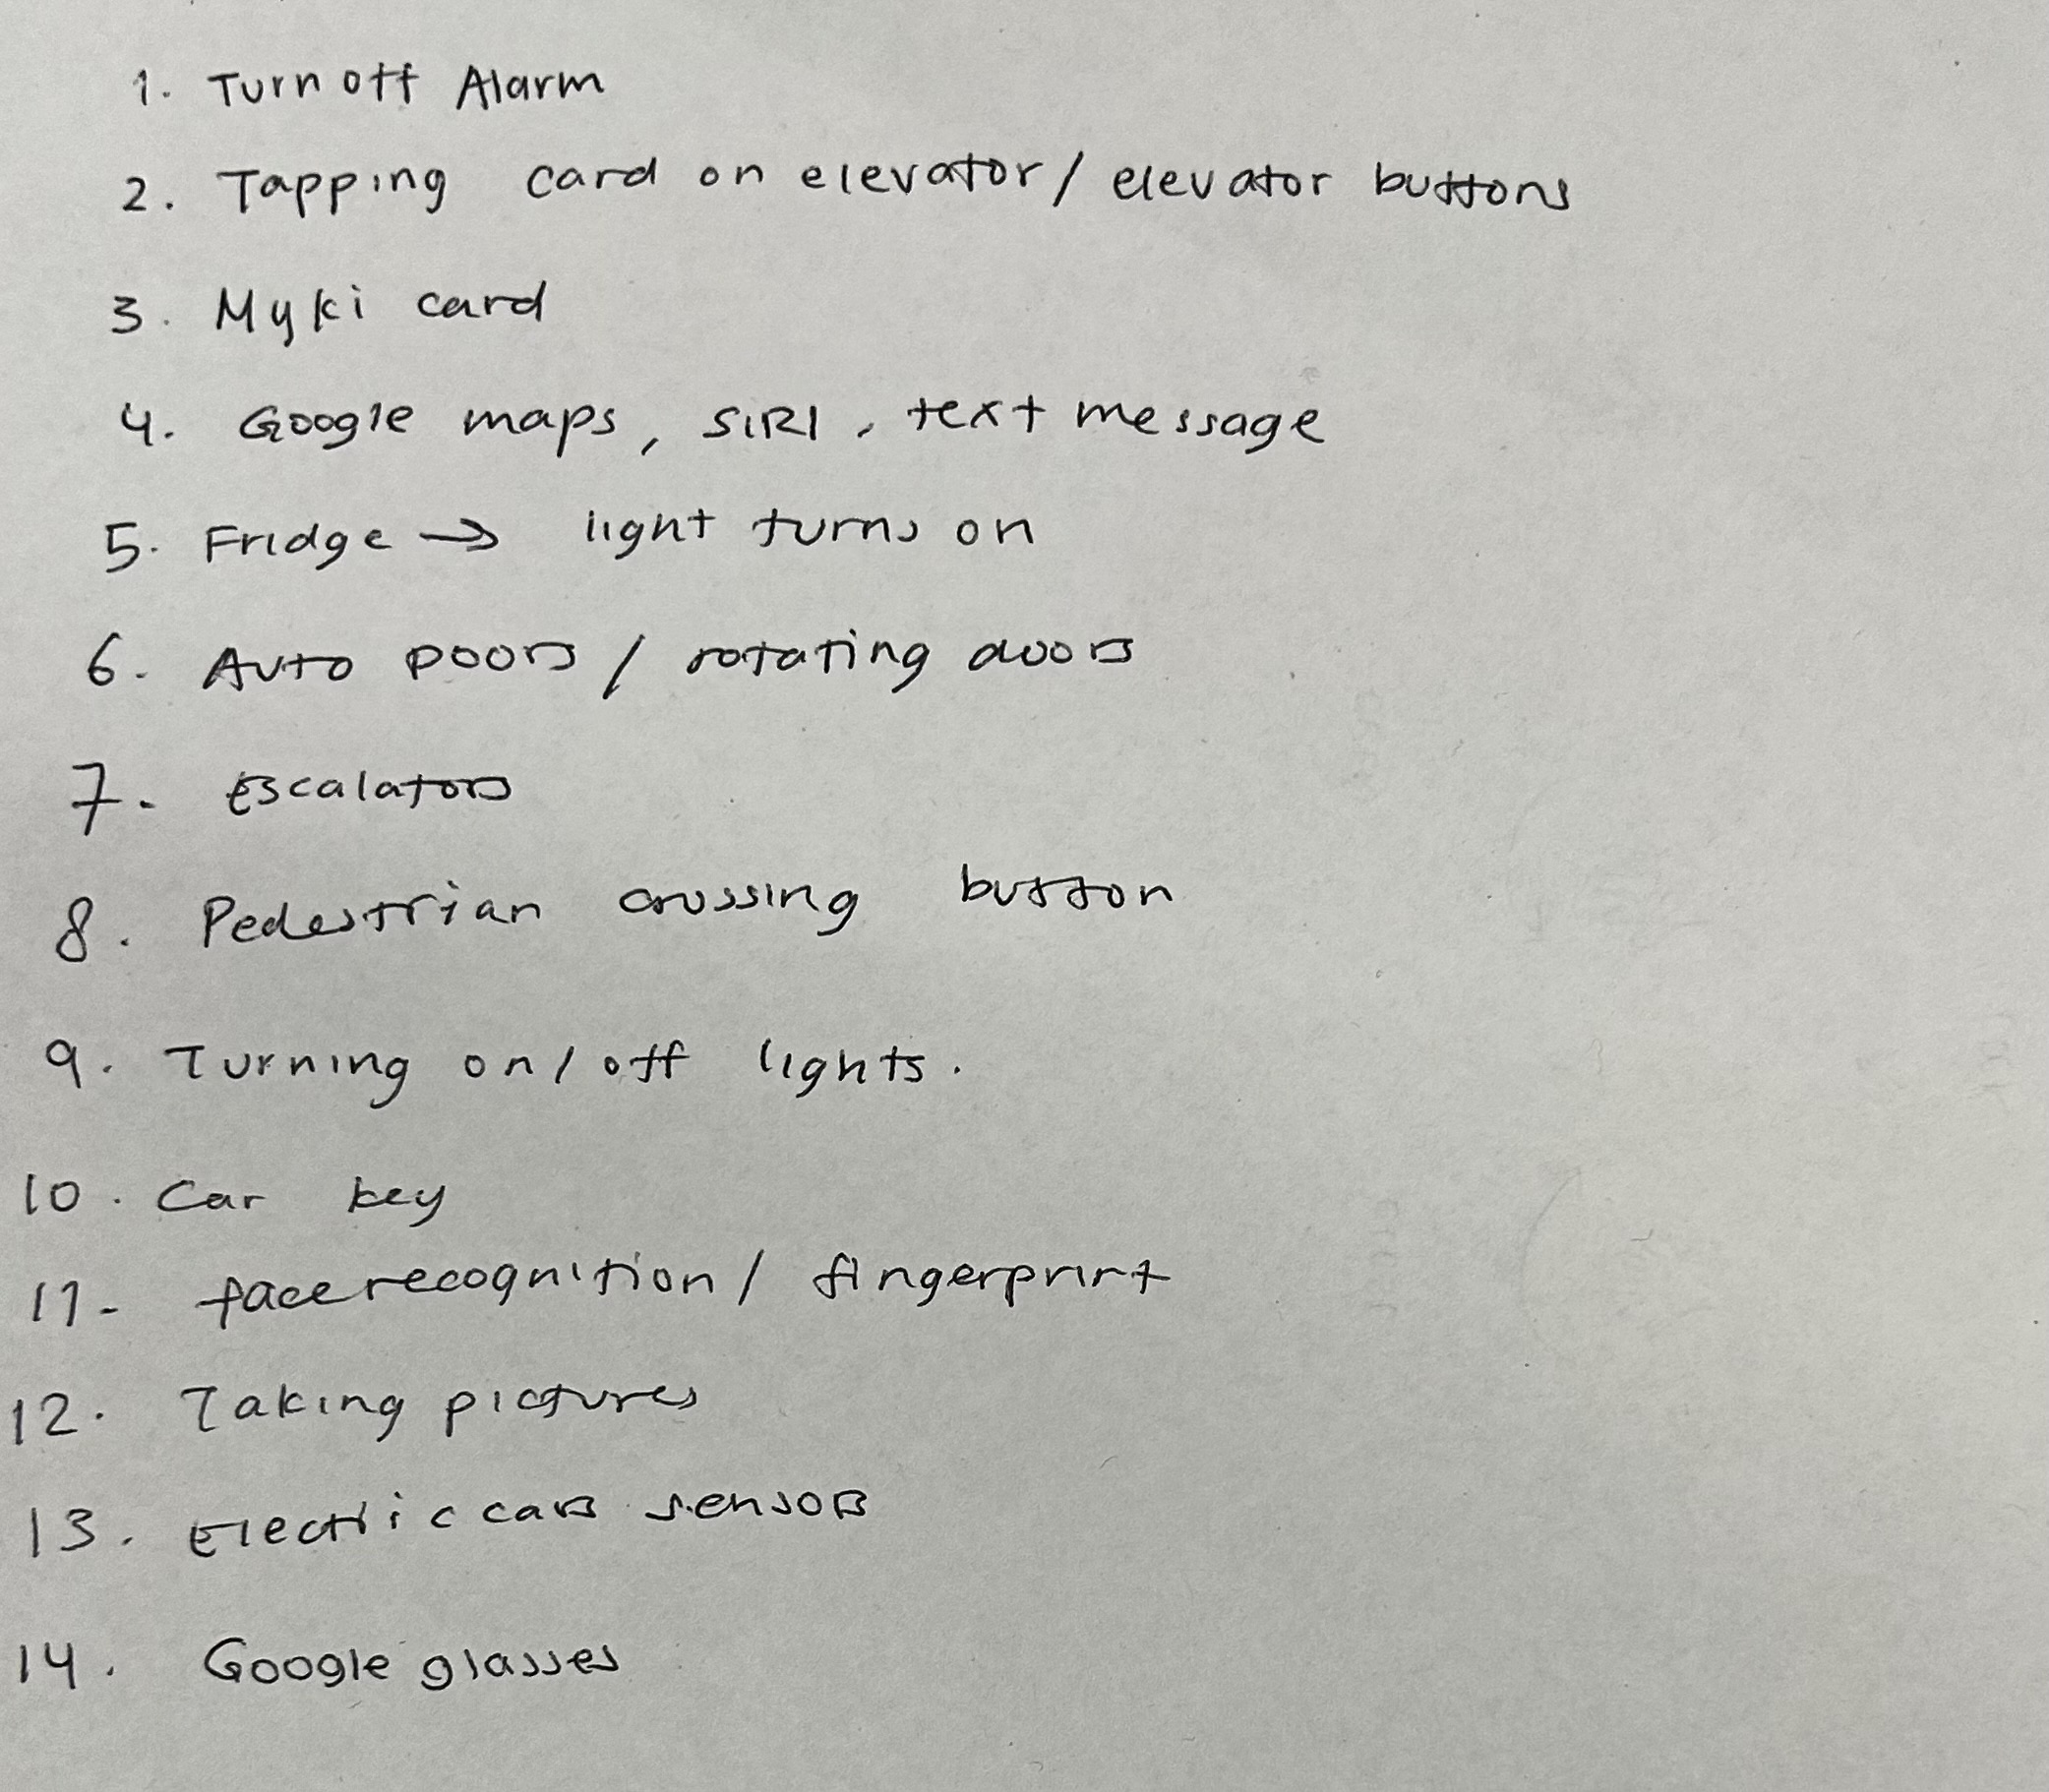 1. Turn off Alarm
2. Tapping card on elevator / elevator buttons
3. Myki card
4. Google maps, SIRI, text message
5. Fridge → light turns on
6. Auto Doors / rotating doors
7. Escalators
8. Pedestrian crossing button
9. Turning on / off lights.
10. Car key
11- face recognition / fingerprint
12. Taking pictures
13. Electric cars sensors
14. Google glasses